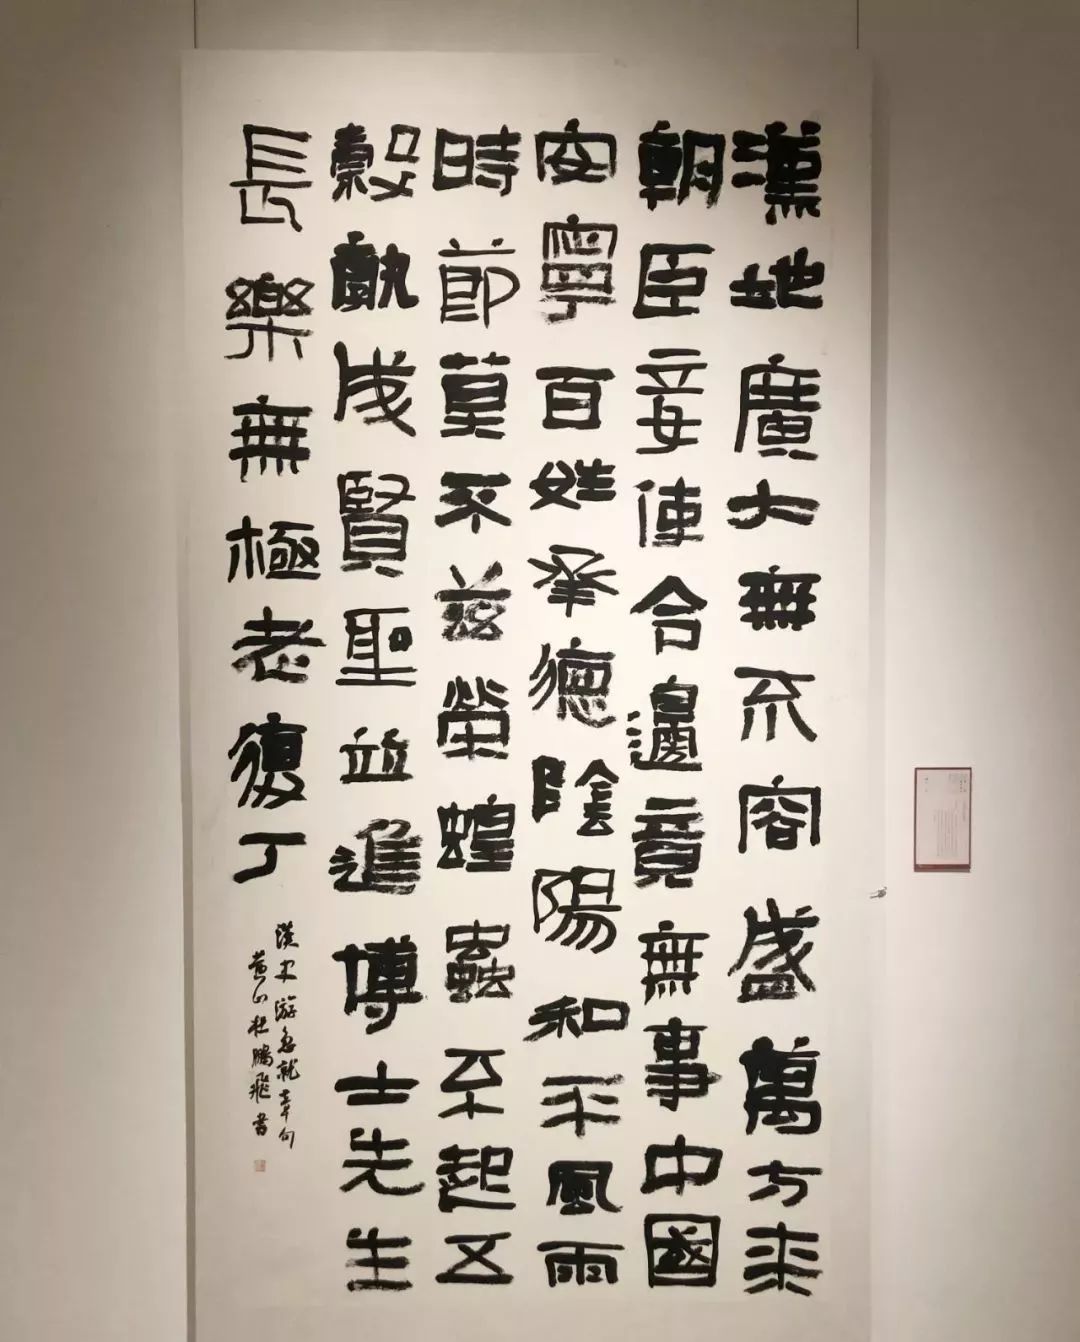 漢地廣大無不容盛萬方來
朝臣妾使令邊竟無事中國
安寧百姓承德陰陽和平風雨
時節莫不茲榮蝗蟲不起五
穀孰成賢聖並進博士先生
長樂無極老復丁
漢史游急就章句
黃山杜鵬飛書